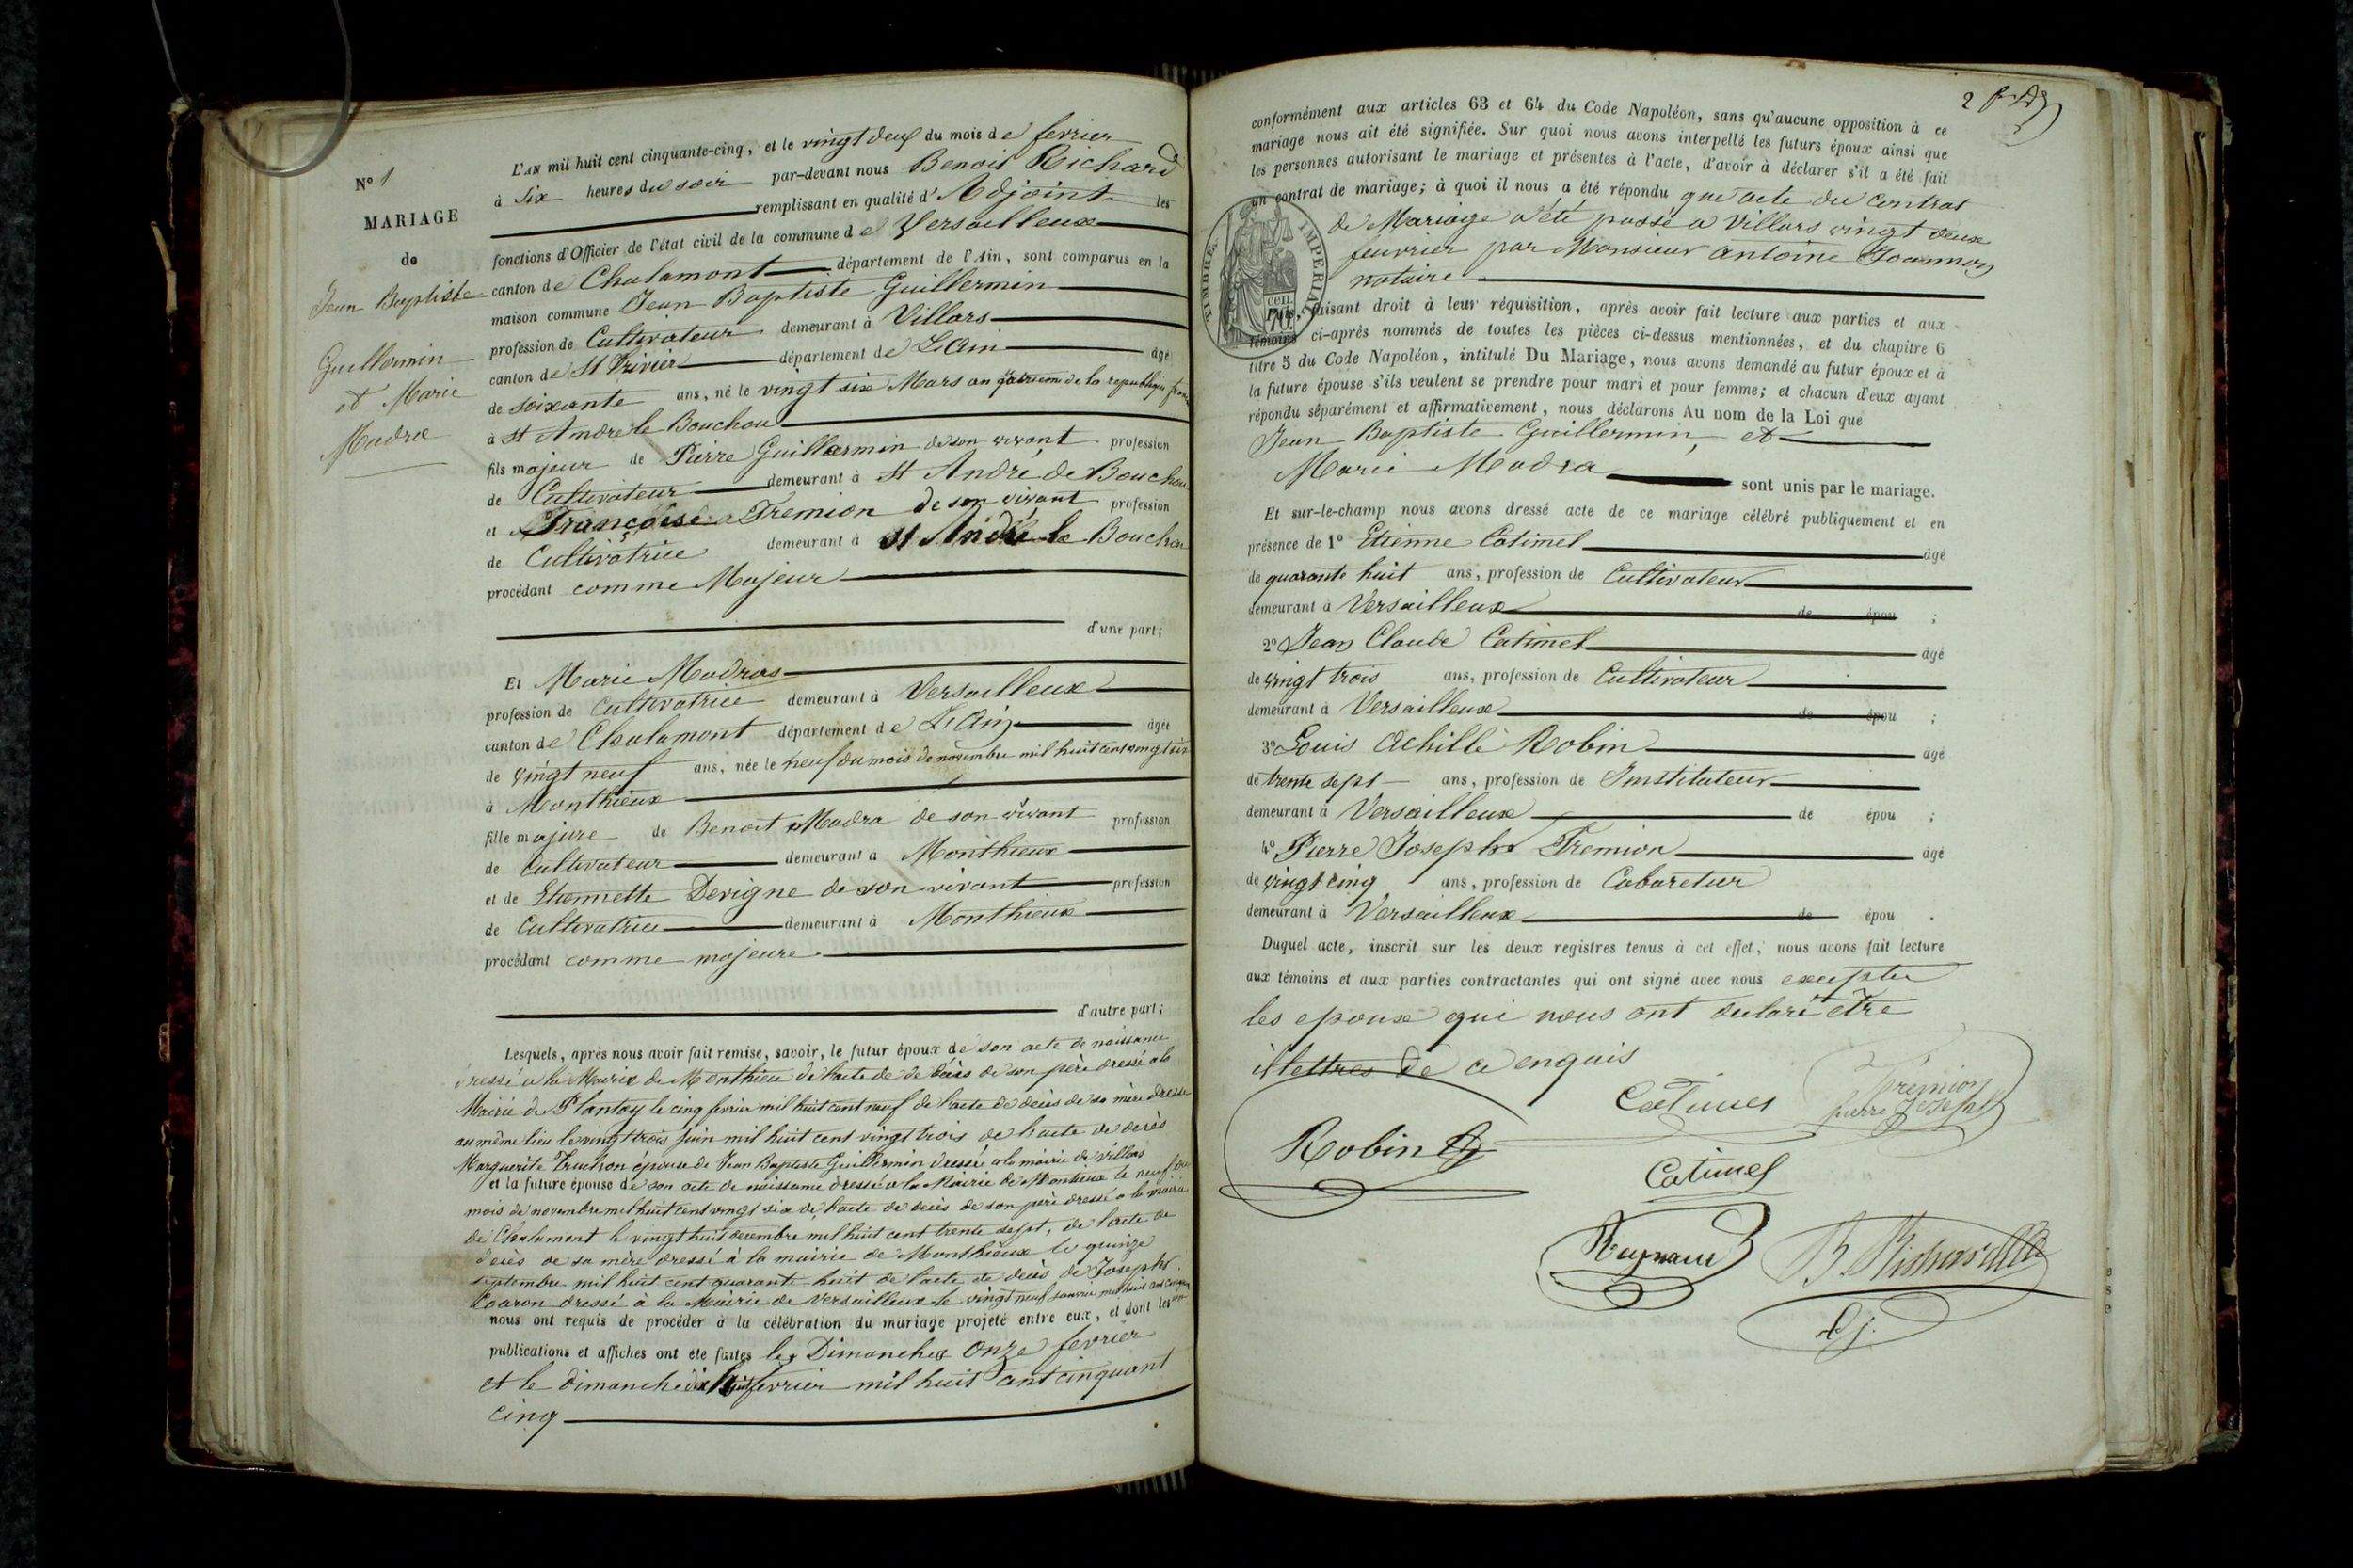 N° 1
MARIAGE
de
Jean Baptiste
Guillermin
et Marie
Madra
L'AN mil huit cent cinquante-cinq, et le vingt deux du mois de fevrier
à six heures du soir par-devant nous Benoit Richard
remplissant en qualité d'Adjoint les
fonctions d'Officier de l'état civil de la commune de Versailleux
canton de Chalamont département de l'Ain, sont comparus en la
maison commune Jean Baptiste Guillermin
profession de Cultivateur demeurant à Villars
canton de St Trivier département de L'Ain âgé
de soixante ans, né le vingt six Mars an quatrieme de la republique
à St André le Bouchou
fils majeur de Pierre Guillermin de son vivant profession
de Cultivateur demeurant à St André de Bouchou
et Françoise Tremion de son vivant profession
de Cultivatrice demeurant à St André le Bouchou
procédant comme Majeur
d'une part;
Et Marie Madras
profession de Cultivatrice demeurant à Versailleux
canton de Chalamont département de L'Ain âgée
de vingt neuf ans, née le neuf du mois de novembre mil huit cent vingt six
à Monthieux
fille majure de Benoit Madra de son vivant profession
de Cultivateur demeurant à Monthieux
et de Etiennette Devigne de son vivant profession
de Cultivatrice demeurant à Monthieux
procédant comme majeure
d'autre part;
Lesquels, après nous avoir fait remise, savoir, le futur époux de son acte de naissance
dressé a la Mairie de Monthieu de l'acte de décès de son père dressé a la
Mairie de Plantay le cinq fevrier mil huit cent neuf de l'acte de décès de sa mère dressé
au même lieu le vingt trois juin mil huit cent vingt trois de l'acte de decès
Marguerite Truchon épouse de Jean Baptiste Guillermin dressée a la mairie de Villars
et la future épouse de son acte de naissance dressé a la Mairie de Montieux le neuf du
mois de novembre mil huit cent vingt six de l'acte de décès de son père dressé a la mairie
de Chalamont le vingt huit decembre mil huit cent trente sept, de l'acte de
decès de sa mère dressé à la mairie de Monthieux le quinze
septembre mil huit cent quarante huit de l'acte de décès de Joseph
dressé à la Mairie de Versailleux le vingt neuf janvier mil huit cent
nous ont requis de procéder à la célébration du mariage projeté entre eux, et dont les
publications et affiches ont été faites les Dimanches Onze fevrier
et le dimanche dix huit fevrier mil huit cent cinquant
cinq
2
conformément aux articles 63 et 64 du Code Napoléon, sans qu'aucune opposition à ce
mariage nous ait été signifiée. Sur quoi nous avons interpellé les futurs époux ainsi que
les personnes autorisant le mariage et présentes à l'acte, d'avoir à déclarer s'il a été fait
un contrat de mariage; à quoi il nous a été répondu que acte du contrat
de Mariage a été passé a Villars vingt deux
feuvrier par Monsieur Antoine Joannon
notaire
TIMBRE IMPERIAL
70 cen.
faisant droit à leur réquisition, après avoir fait lecture aux parties et aux
témoins ci-après nommés de toutes les pièces ci-dessus mentionnées, et du chapitre 6
titre 5 du Code Napoléon, intitulé Du Mariage, nous avons demandé au futur époux et à
la future épouse s'ils veulent se prendre pour mari et pour femme; et chacun d'eux ayant
répondu séparément et affirmativement, nous déclarons Au nom de la Loi que
Jean Baptiste Guillermin, et
Marie Madra sont unis par le mariage.
Et sur-le-champ nous avons dressé acte de ce mariage célébré publiquement et en
présence de 1° Etienne Catimel âgé
de quarante huit ans, profession de Cultivateur
demeurant à Versailleux de épou ;
2° Jean Claude Catimel âgé
de vingt trois ans, profession de Cultivateur
demeurant à Versailleux de épou ;
3° Louis Achille Robin âgé
de trente sept ans, profession de Instituteur
demeurant à Versailleux de épou ;
4° Pierre Joseph Tremion âgé
de vingt cinq ans, profession de Cabaretier
demeurant à Versailleux de épou .
Duquel acte, inscrit sur les deux registres tenus à cet effet, nous avons fait lecture
aux témoins et aux parties contractantes qui ont signé avec nous excepter
les epoux qui nous ont déclaré être
illettres de a enquis
Catimel
Tremion
pierre Joseph
Robin
Catimel
Reynaud
B. Richard
Adj.